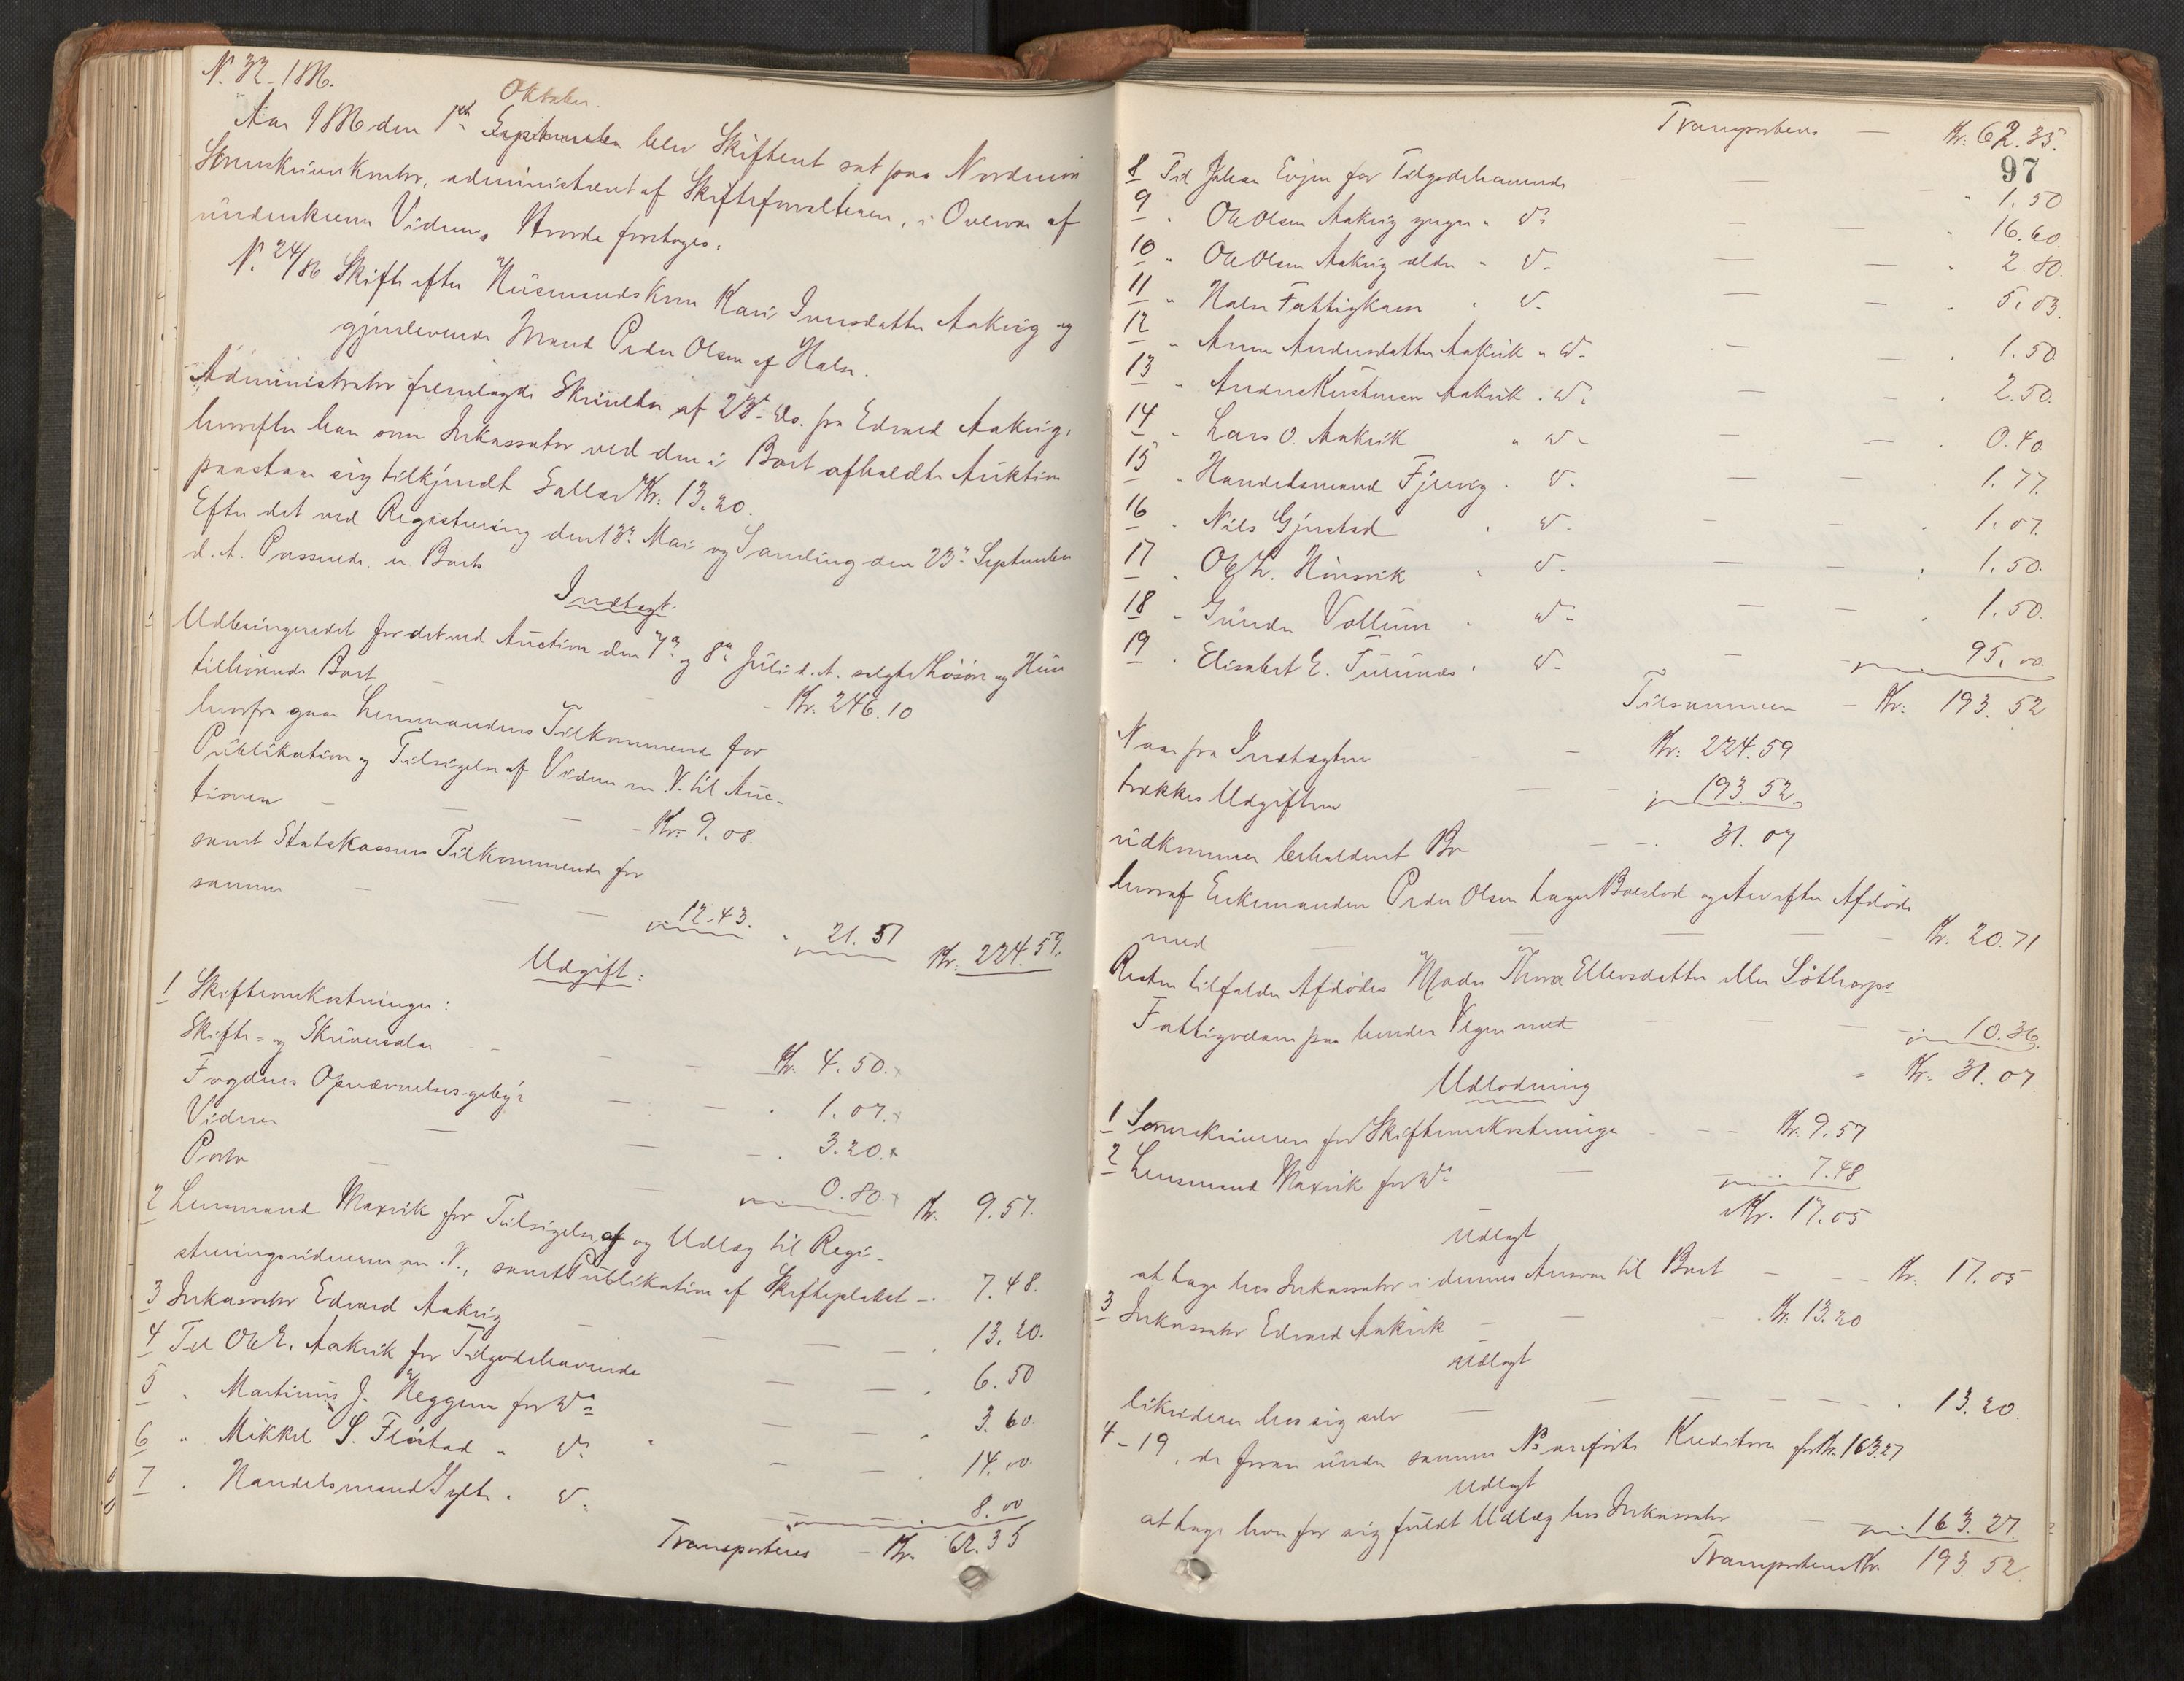 N. 32 - 1886.
Oktober.
Aar 1886 den 1ste September blev Skifteret sat paa Nordmøre
Sorenskriverkontor, administreret af Skifteforvalteren, i Overvær af
underskrevne Vidner. Hvorda foretoges:
N. 24/86 Skifte efter Husmandskone Kari Iversdatter Aakvig og
gjenlevende Mand Peder Olsen af Halse.
Administrator fremlagde Skrivelse af 23de ds. fra Edvard Aakvig,
hvorefter han som Inkassator ved den i Boet afholdte Auktion
paastaar sig tilkjendt Sallær Kr. 13.20.
Efter det ved Registrering den 13de Mai og Samling den 23de September
d. A. Passerede er Boets
Indtægt.
Udbringendet for det ved Auction den 7de og 8de Juli d. A. solgte Løsøre og Huse
tilhørende Boet - - Kr. 246.10
hvorfra gaar Lensmandens Tilkommende for
Publikation og Tilsigelse af Vidner m. V. til Auc-
tionen - - - Kr. 9.08.
samt Statskassens Tilkommende for
samme - - - " 12.43. " 21.51 Kr. 224.59.
Udgift:
1 Skifteomkostninger:
Skifte- og Skriversalær - - - Kr. 4.50.
Fogdens Opnævnelses-gebyr - - " 1.07.
Vidner - - - " 3.20.
Porto - - " 0.80. Kr. 9.57.
2 Lensmand Maxvik for Tilsigelse af og Udlæg til Regi-
streringsvidnerne m. V., samt Publikation af Skifteplakat - " 7.48.
3 Inkassator Edvard Aakvig - - - " 13.20.
4 Til Ole E. Aakvik for Tilgodehavende - - " 6.50
5 " Martinus J. Heggem for Do - - " 3.60.
6 " Mikkel S. Flostad " Do " - - " 14.00
7 " Handelsmand Sylte " Do - - " 8.00
Transporteres - Kr. 62.35
Transporteres - Kr. 62.35.
97
8 Til Johan Evjen for Tilgodehavende - - " 1.50
9 " Ole Olsen Aakvig yngre " Do - - " 16.60.
10 " Ole Olsen Aakvig ældre " Do - - " 2.80.
11 " Halse Fattigkasse " Do - - " 5.03.
12 " Anne Andersdatter Aakvik " Do - - " 1.50
13 " Anders Kristensen Aakvik " Do - - " 2.50.
14 " Lars O. Aakvik " Do - - " 0.40.
15 " Handelsmand Fjervig " Do - - " 1.77.
16 " Nils Gjerstad " Do - - " 1.07.
17 " Ole L. Hønsvik " Do - - " 1.50.
18 " Gunder Vollum " Do - - " 1.50.
19 " Elisabet E. Furunæs " Do - - " 95.00.
Tilsammen - Kr. 193.52
Naar fra Indtægten - - Kr. 224.59
trækkes Udgiften - - " 193.52
udkommer beholdent Bo - - " 31.07
hvoraf Enkemanden Peder Olsen tager Boeslod og Arv efter Afdøde
med - - - - Kr. 20.71
Resten tilfalder Afdødes Moder Thora Ellevsdatter eller
Fattigvæsen paa hendes Vegne med - - - " 10.36.
- Kr. 31.07.
Udlodning
1 Sorenskriveren for Skifteomkostninger - - Kr. 9.57
2 Lensmand Maxvik for Do - - " 7.48
Kr. 17.05
Udlagt
at tage hos Inkassator i dennes Ansvar til Boet - - Kr. 17.05
3 Inkassator Edvard Aakvik - - Kr. 13.20
Udlagt
likviderer hos sig selv - - - - " 13.20.
4-19, de foran under samme No anførte Kreditorer for Kr. 163.27
Udlagt
at tage hver for sig fuldt Udlæg hos Inkassator - " 163.27.
Transporteres Kr. 193.52.